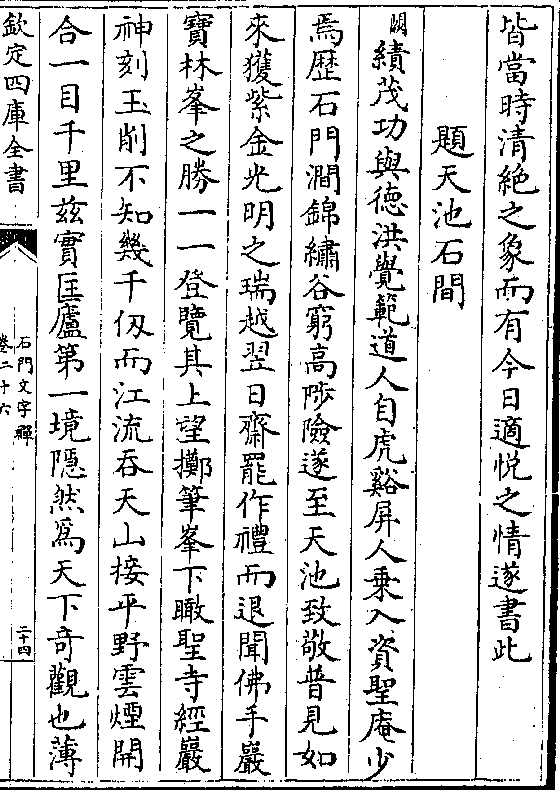 皆當時清絶之象而有今日適悦之情遂書此
題天池石間
閎績茂功與徳洪覺範道人自虎谿屏人乗入資聖庵少
焉歴石門澗錦繡谷窮高陟險遂至天池致敬普見如
來獲紫金光明之瑞越翌日齋罷作禮而退聞佛手巖
寳林峯之勝一一登覽其上望擲筆峯下瞰聖寺經巖
神刻玉削不知幾千仭而江流吞天山接平野雲煙開
合一目千里兹實匡廬第一境隠然為天下奇觀也薄
欽定四庫全書
石門文字禪
卷二十六
二十四